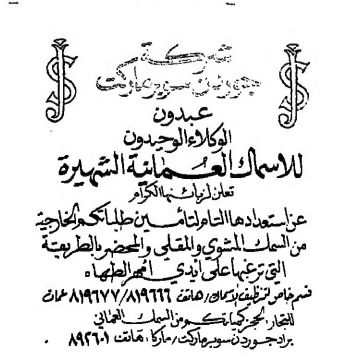 شركة
جوردن سوبر ماركت
عبدون
الوكلاء الوحيدون
للاسماك العُمانية الشهيرة
تعلن لزبائنها الكرام
عن استعدادها التام لتأمين طلباتكم الخارجية
من السمك المشوي والمقلي والمحضر بالطريقة
التي ترغبها على ايدي أمهر الطهاه
قسم خاص لتنظيف الاسماك / هاتف ٨١٩٦٦٦/٨١٩٦٧٧ عمان
للتجار الحجز كمياتكم من السمك العماني
براد جوردن سوبرماركت / ماركا، هاتف ٨٩٢٦٠١